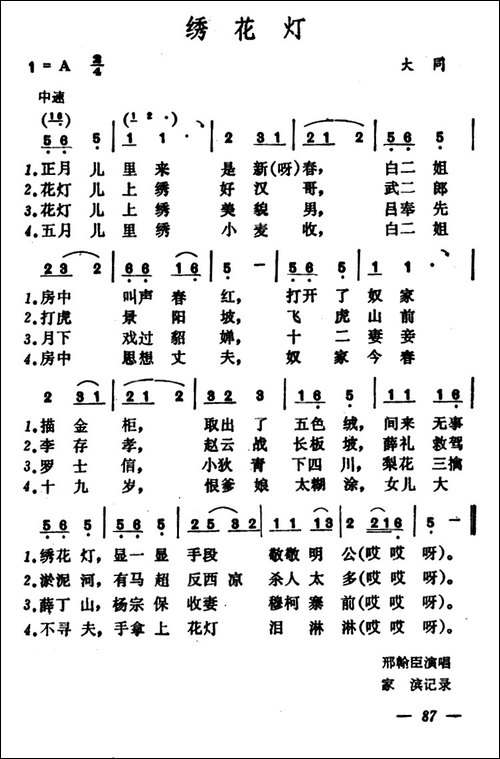 绣花灯
1=A 2/4 大同
中速
(1 6) (1 2 ·)
5 6 5 | 1 1 | 2 3 1 | (2 1) 2 | 5 6 5 |
1.正月 儿 里来 是 新(呀)春, 白二 姐
2.花灯 儿 上绣 好 汉 哥, 武二 郎
3.花灯 儿 上绣 美 貌 男, 吕奉 先
4.五月 儿 里绣 小 麦 收, 白二 姐
2 3 2 | 6 6 1 6 | 5 — | 5 6 5 | 1 1 |
1.房中 叫声 春 红, 打开 了 奴 家
2.打虎 景 阳 坡, 飞 虎 山 前
3.月下 戏过 貂 婵, 十 二 妻 妾
4.房中 思想 丈 夫, 奴 家 今 春
2 3 1 | 2 1 2 | 3 2 3 5 | 1 6 5 | 1 1 1 6 |
1.描 金 柜, 取出 了 五色 绒, 间来 无事
2.李 存 孝, 赵云 战 长板 坡, 薛礼 救驾
3.罗 士 信, 小狄 青 下四 川, 梨花 三擒
4.十 九 岁, 恨爹 娘 太糊 涂, 女儿 大
5 6 5 | 5 6 5 | 2 5 3 2 | 1 1 1 3 | 2 2 1 6 | 5 — ‖
1.绣花 灯, 显一 显 手段 敬敬 明 公(哎 哎 呀)。
2.淤泥 河, 有马 超 反西 凉 杀人 太 多(哎 哎 呀)。
3.薛丁 山, 杨宗 保 收妻 穆柯 寨 前(哎 哎 呀)。
4.不寻 夫, 手拿 上 花灯 泪 淋 淋(哎 哎 呀)。
邢翰臣演唱
家 滨记录
— 87 —